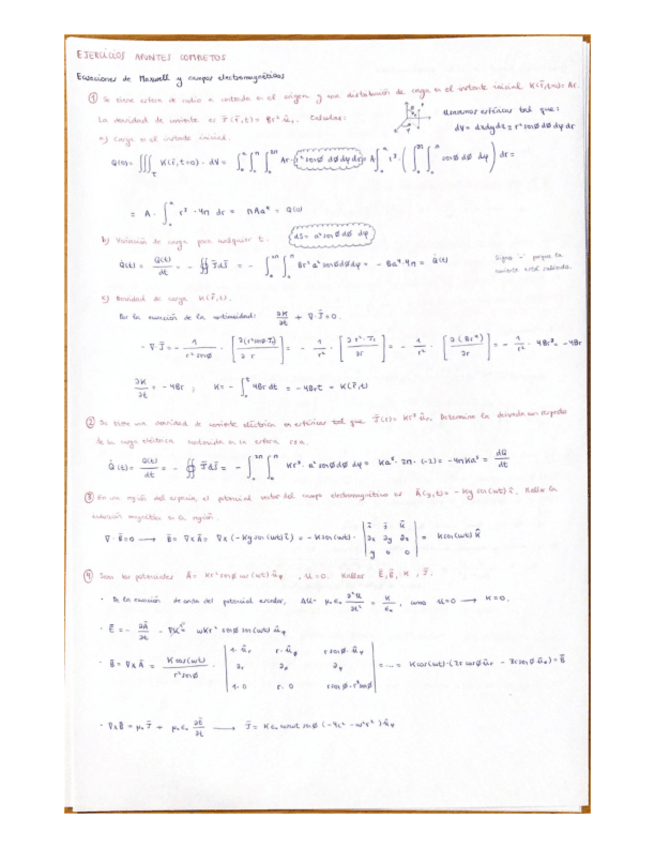 EJERCICIOS APUNTES COMPLETOS
Ecuaciones de Maxwell y campos electromagnéticos
① Se tiene esfera de radio a centrada en el origen y una distribución de carga en el instante inicial K(r̄,t=0)= Ar.
La densidad de corriente es J̄(r̄,t) = Br² ûr. Calcular:
usaremos esféricas tal que:
dV = dxdydz = r² senθ dθ dφ dr
a) Carga en el instante inicial.
Q(0) = ∭τ K(r̄,t=0) · dV = ∫₀ᵃ ∫₀^π ∫₀^2π Ar · r² senθ dθ dφ dr = A ∫₀ᵃ r³ · ( ∫₀^2π ∫₀^π senθ dθ dφ ) dr =
= A · ∫₀ᵃ r³ · 4π dr = πAa⁴ = Q(0)
b) Variación de carga para cualquier t.
dS = a² senθ dθ dφ
Q̇(t) = Q(t)/dt = - ∯ J̄ dS̄ = - ∫₀^2π ∫₀^π Br² a² senθ dθ dφ = - Ba⁴ · 4π = Q̇(t)
Signo "-" porque la corriente está saliendo.
c) Densidad de carga K(r̄,t).
Por la ecuación de la continuidad: ∂K/∂t + ∇·J̄ = 0.
- ∇·J̄ = - 1/(r² senθ) · [∂(r² senθ Jr)/∂r] = - 1/r² · [∂ r² · Jr/∂r] = - 1/r² · [∂(Br⁴)/∂r] = - 1/r² · 4Br³ = - 4Br
∂K/∂t = - 4Br ; K = - ∫₀ᵗ 4Br dt = - 4Brt = K(r̄,t)
② Se tiene una densidad de corriente eléctrica en esféricas tal que J̄(r) = Kr³ ûr. Determine la derivada con respecto
de la carga eléctrica contenida en la esfera r=a.
Q̇(t) = Q(t)/dt = - ∯ J̄ dS̄ = - ∫₀^2π ∫₀^π Kr³ · a² senθ dθ dφ = Ka⁵ · 2π · (-2) = - 4πKa⁵ = dQ/dt
③ En una región del espacio, el potencial vector del campo electromagnético es Ā(y,t) = - Ky cos(ωt) î. Hallar la
inducción magnética en la región.
∇·B̄ = 0 → B̄ = ∇×Ā = ∇×(-Ky cos(ωt) î) = - K cos(ωt) · | î ĵ k̂ ; ∂x ∂y ∂z ; y 0 0 | = K cos(ωt) k̂
④ Sean los potenciales Ā = Kr² senθ cos(ωt) ûφ , U = 0. Hallar Ē, B̄, K, J̄.
· De la ecuación de onda del potencial escalar, ΔU - μ₀ε₀ ∂²U/∂t² = K/ε₀ , como U=0 → K = 0.
· Ē = - ∂Ā/∂t - ∇U = ωKr² senθ sen(ωt) ûφ
· B̄ = ∇×Ā = K cos(ωt)/(r² senθ) · | 1·ûr r·ûθ r senθ·ûφ ; ∂r ∂θ ∂φ ; 1·0 r·0 r senθ·r² senθ | = ... = K cos(ωt)·(2r cosθ ûr - 3r senθ ûθ) = B̄
· ∇×B̄ = μ₀ J̄ + μ₀ε₀ ∂Ē/∂t → J̄ =